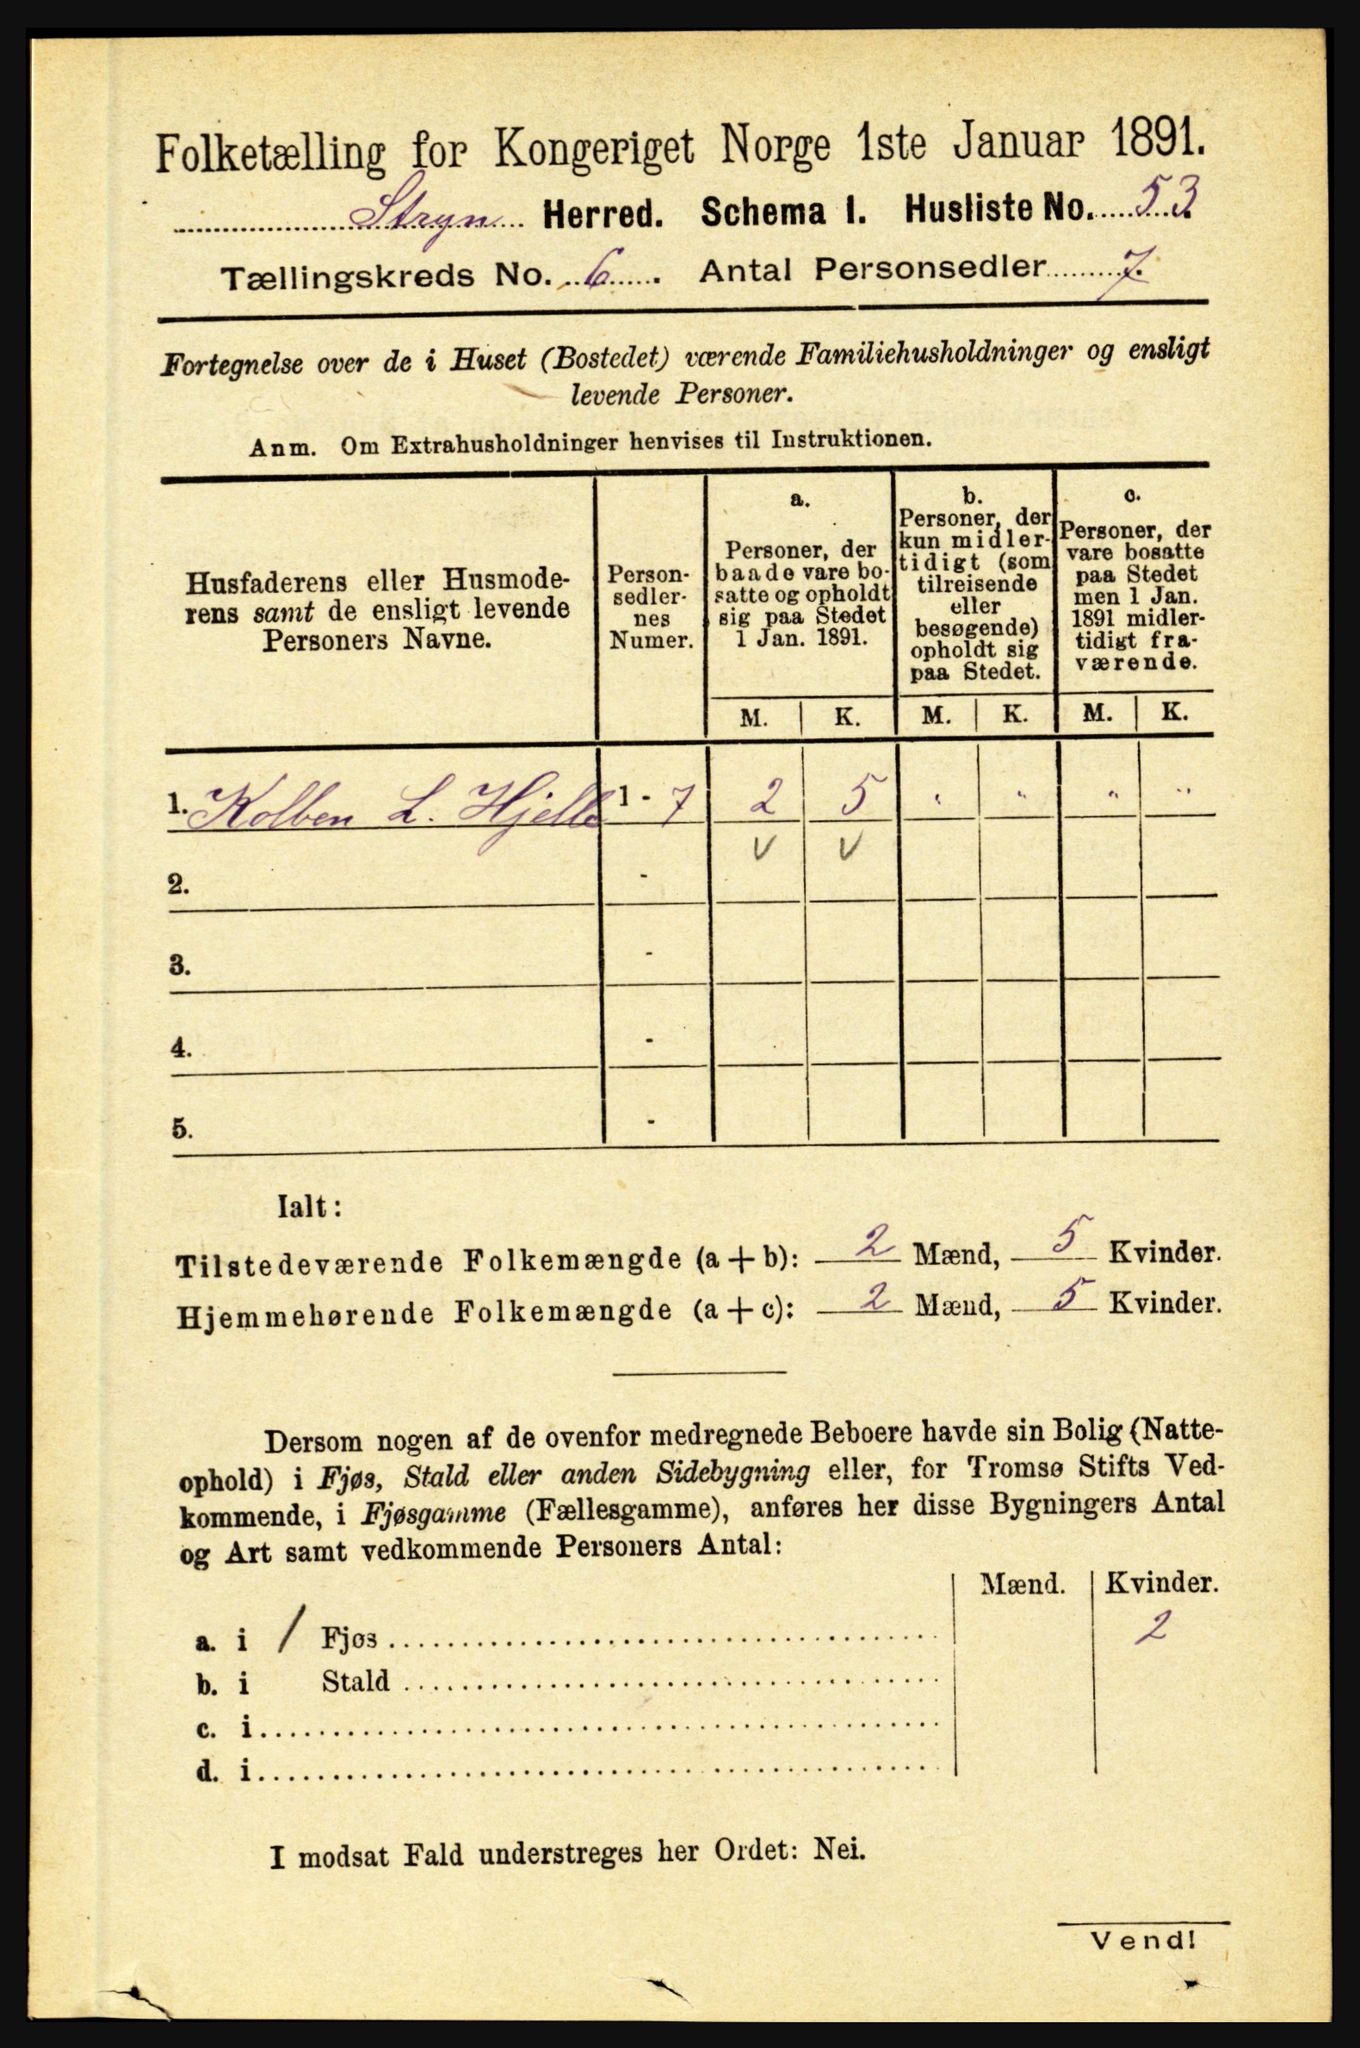 Folketælling for Kongeriget Norge 1ste Januar 1891.
Stryn Herred. Schema 1. Husliste No. 53.
Tællingskreds No. 6. Antal Personsedler 7.
Fortegnelse over de i Huset (Bostedet) værende Familiehusholdninger og ensligt
levende Personer.
Anm. Om Extrahusholdninger henvises til Instruktionen.
Husfaderens eller Husmode-
rens samt de ensligt levende
Personers Navne.
Person-
sedler-
nes
Numer.
a.
Personer, der
baade vare bo-
satte og opholdt
sig paa Stedet
1 Jan. 1891.
b.
Personer, der
kun midler-
tidigt (som
tilreisende
eller
besøgende)
opholdt sig
paa Stedet.
c.
Personer, der
vare bosatte
paa Stedet
men 1 Jan.
1891 midler-
tidigt fra-
værende.
M. K. M. K. M. K.
1. Kolben L. Hjelle 1 - 7 2 5 " " " "
v v
2. -
3. -
4. -
5. -
Ialt:
Tilstedeværende Folkemængde (a + b): 2 Mænd, 5 Kvinder.
Hjemmehørende Folkemængde (a + c): 2 Mænd, 5 Kvinder.
Dersom nogen af de ovenfor medregnede Beboere havde sin Bolig (Natte-
ophold) i Fjøs, Stald eller anden Sidebygning eller, for Tromsø Stifts Ved-
kommende, i Fjøsgamme (Fællesgamme), anføres her disse Bygningers Antal
og Art samt vedkommende Personers Antal:
Mænd. Kvinder.
a. i / Fjøs 2
b. i Stald
c. i
d. i
I modsat Fald understreges her Ordet: Nei.
Vend!